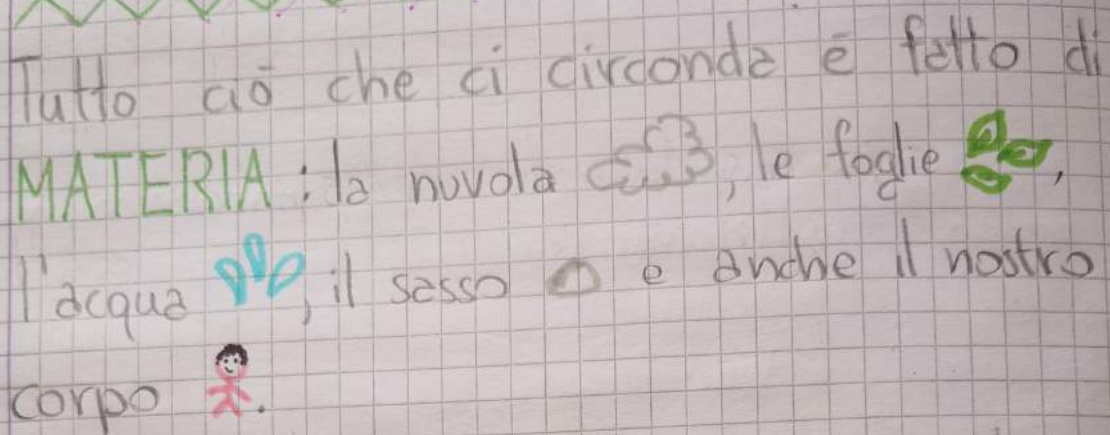 Tutto ciò che ci circonda è fatto di
MATERIA: la nuvola, le foglie,
l'acqua, il sasso e anche il nostro
corpo.